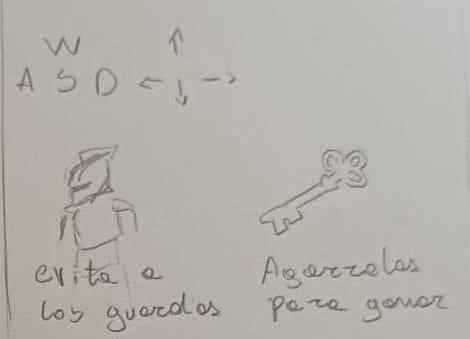 W ↑
A S D ← ↓ →
evita a
los guardas
Agarralas
para ganar